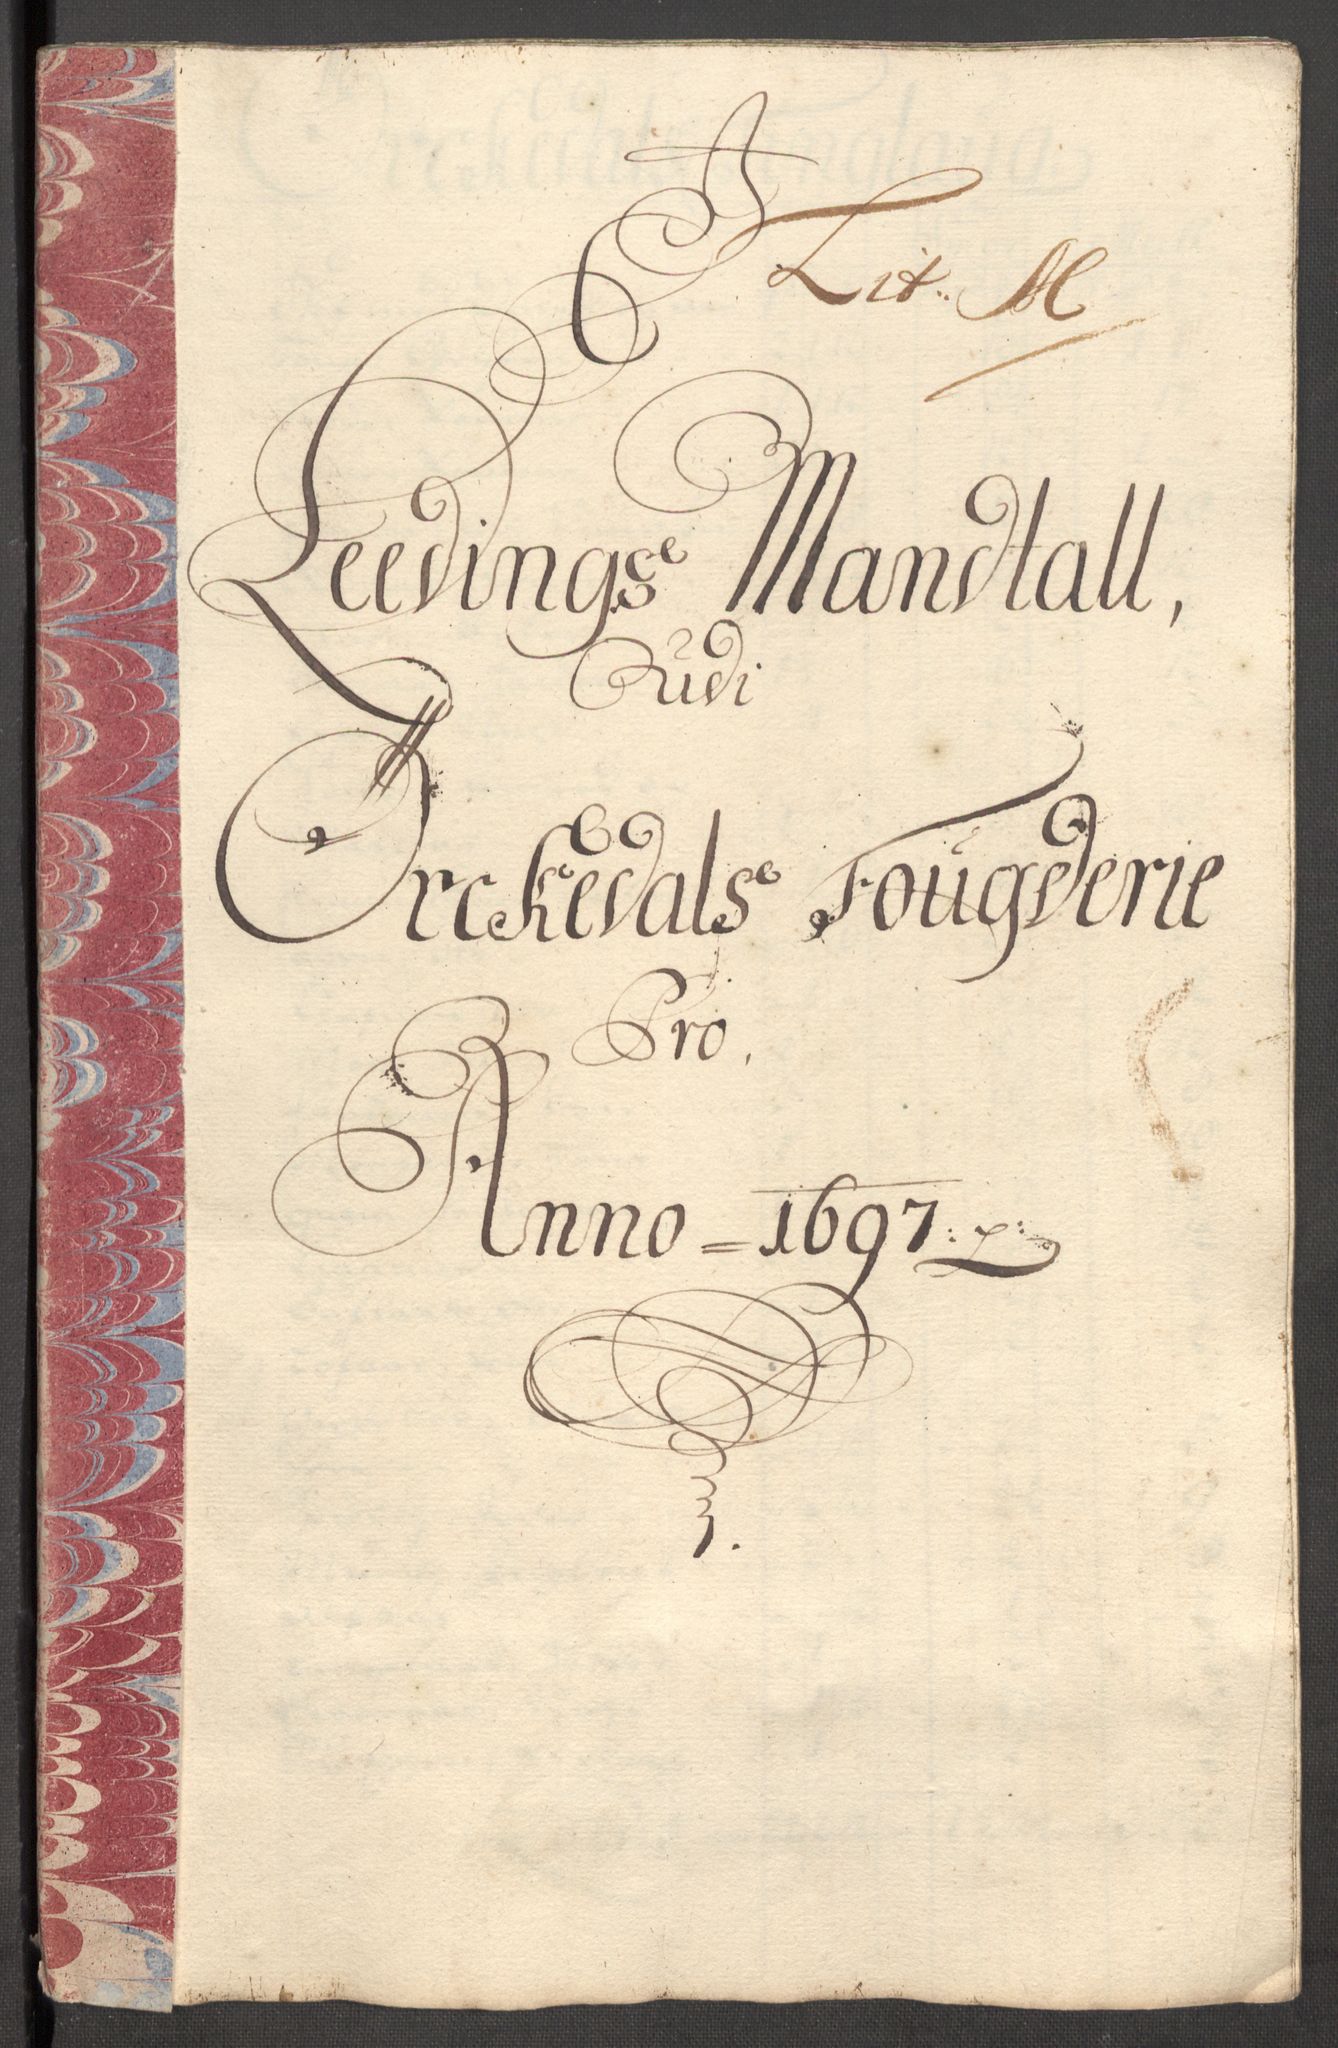 Lit: M
Leedings Mandtall,
Udi
Orckedals Fougderie
Pro,
Anno = 1697